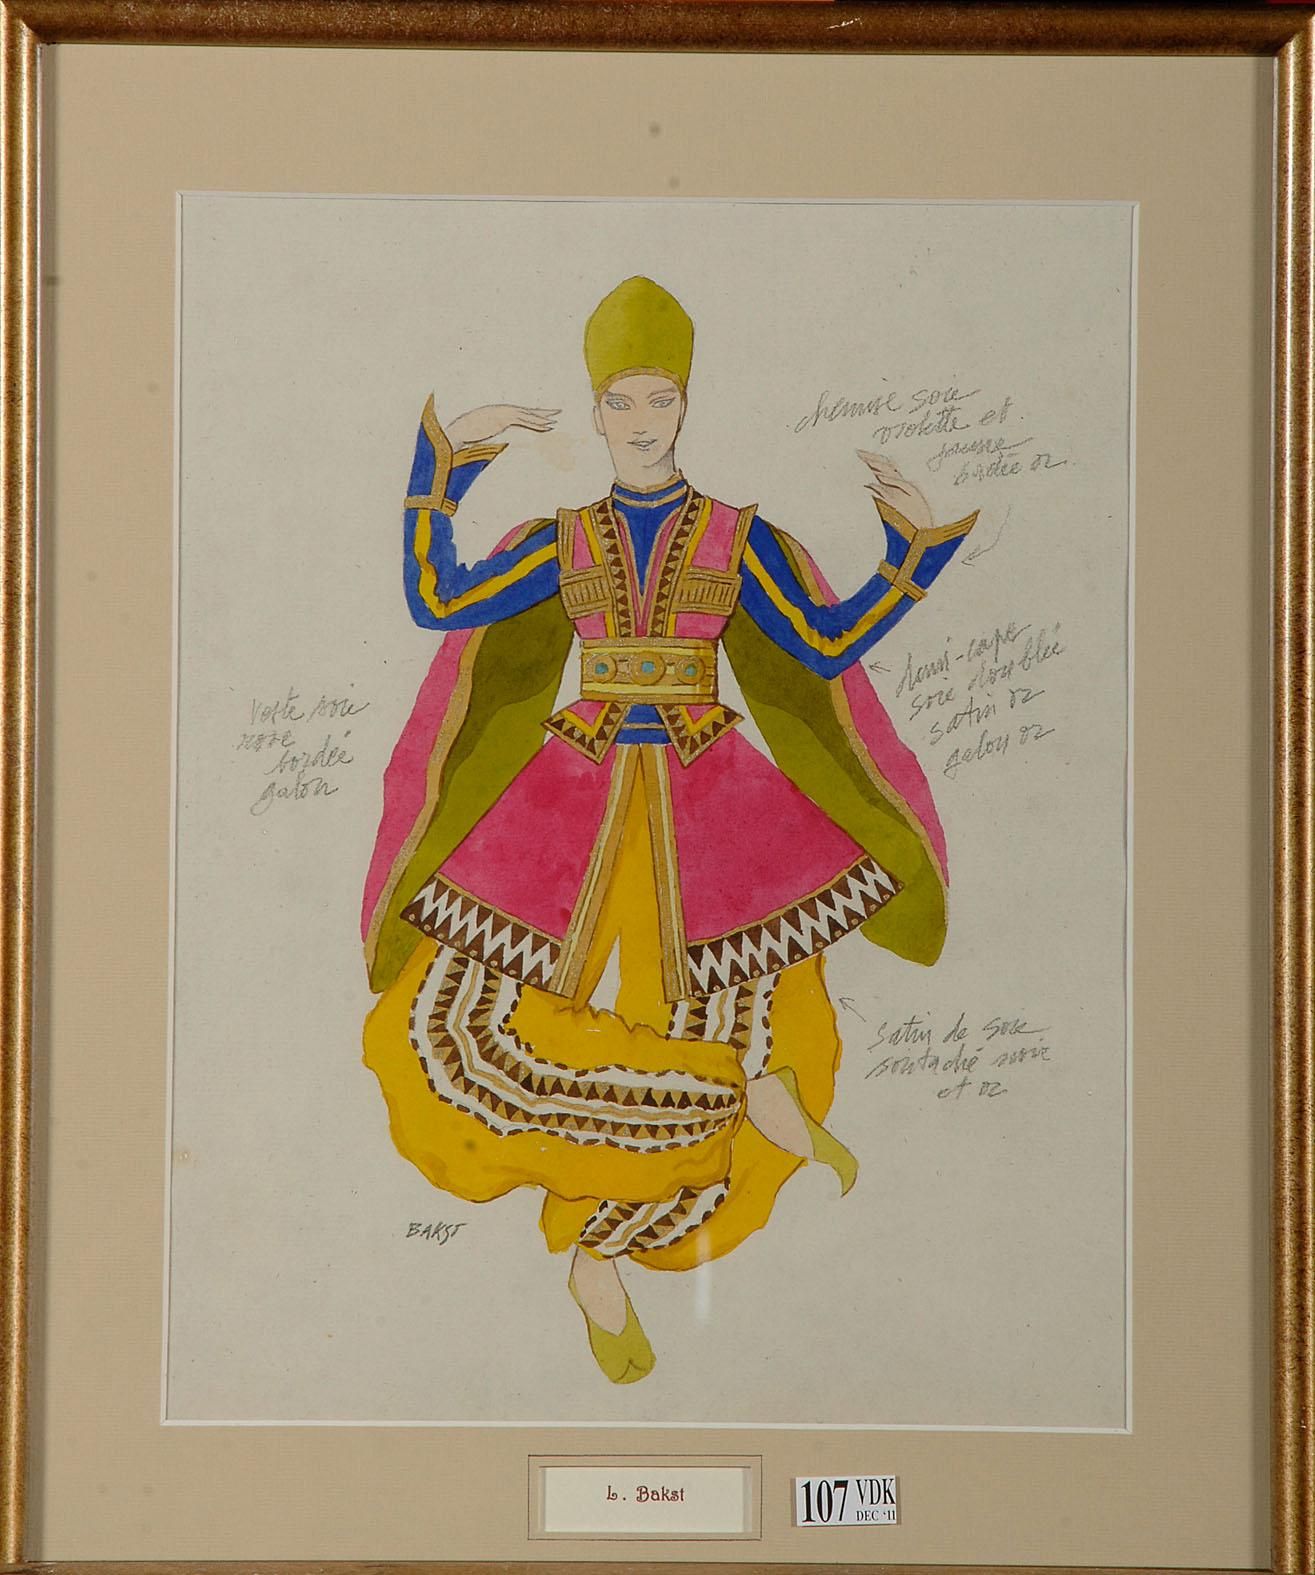 chemise soie
violette et
jaune
brodée or
demi-cape
soie doublée
satin or
galon or
veste soie
rose
bordée
galon
satin de soie
soutaché noir
et or
BAKST
L. Bakst
107 VDK
DEC '11